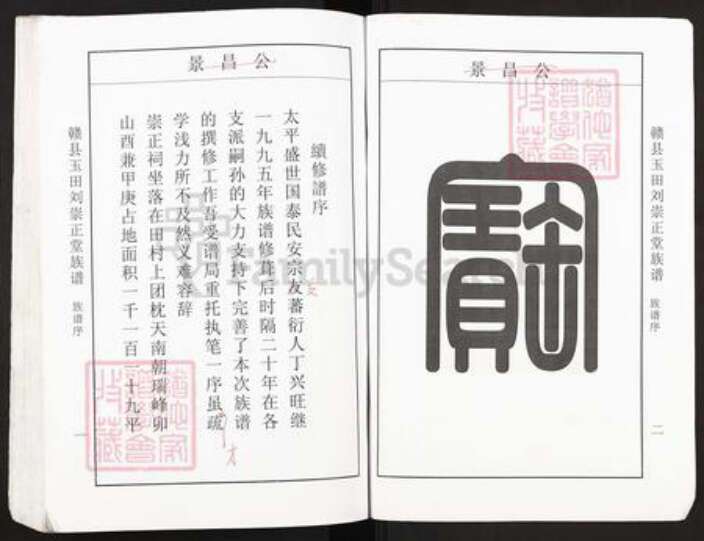 公昌景
續修譜序
太平盛世国泰民安宗友蕃衍人丁兴旺继
一九九五年族谱修葺后时隔二十年在各
支派嗣孙的大力支持下完善了本次族谱
的撰修工作吾受谱局重托执笔一序虽疏
学浅力所不及然义难容辞
崇正祠坐落在田村上团枕天南朝瑞峰卯
山酉兼甲庚占地面积一千一百一十九平
赣县玉田刘崇正堂族谱
族谱序
一
才
公昌景
寳
赣县玉田刘崇正堂族谱
族谱序
二
FamilySearch